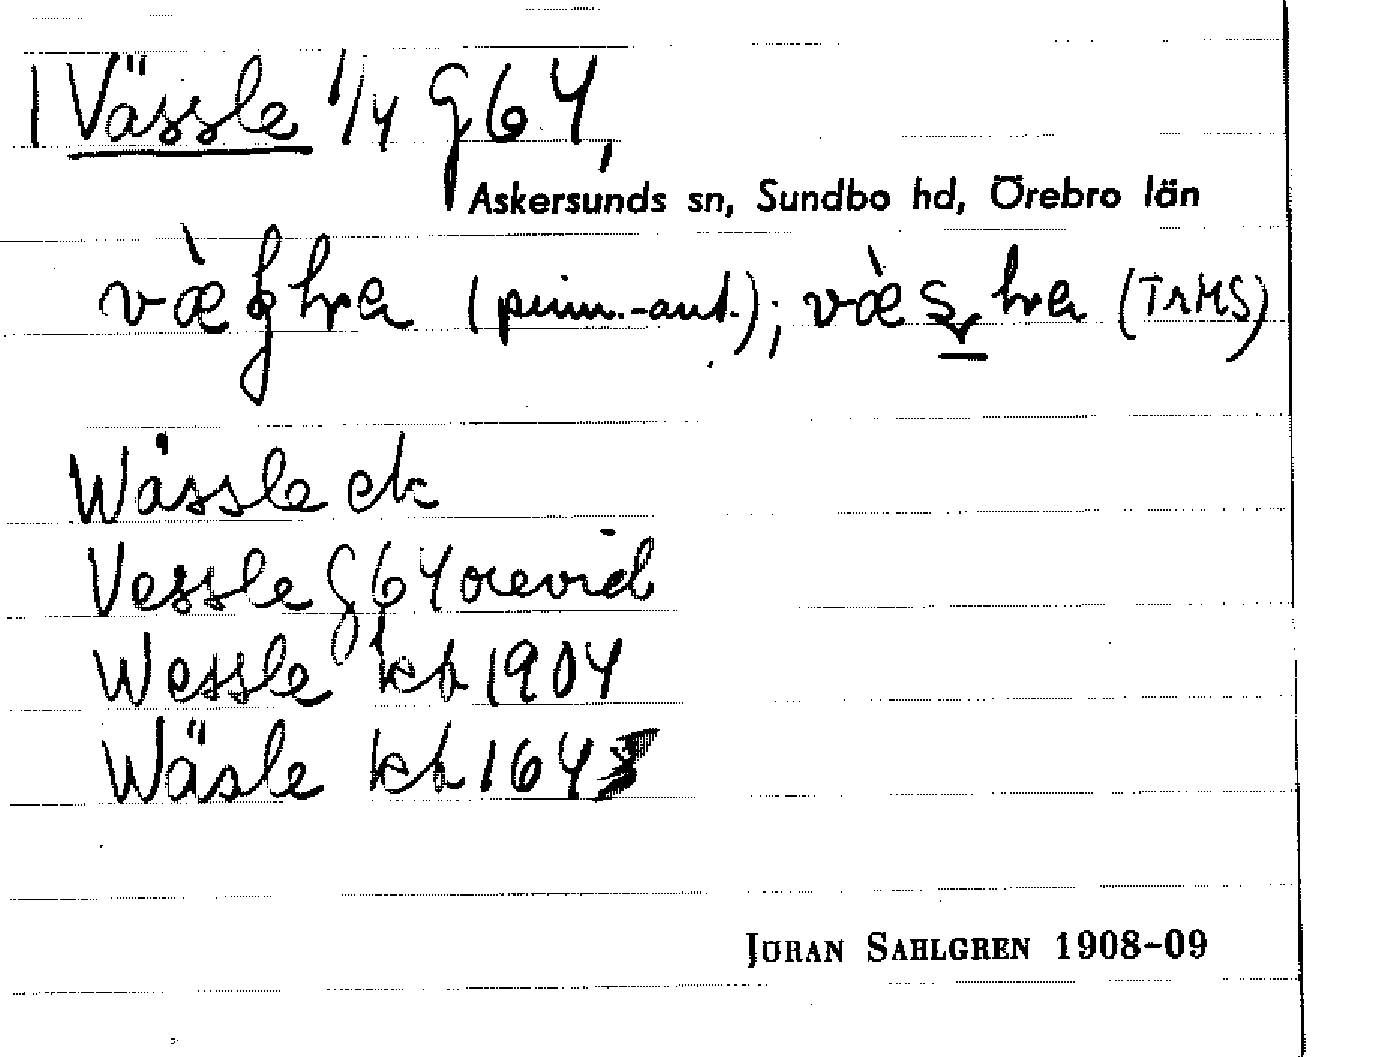 1 Vässle 1/4 G64,
Askersunds sn, Sundbo hd, Örebro län
(prim.-ant.); (TrMS)
Wässle ek
Vessle G64 orevid
Wessle kb 1904
Wäsle kb 164
JÖRAN SAHLGREN 1908-09